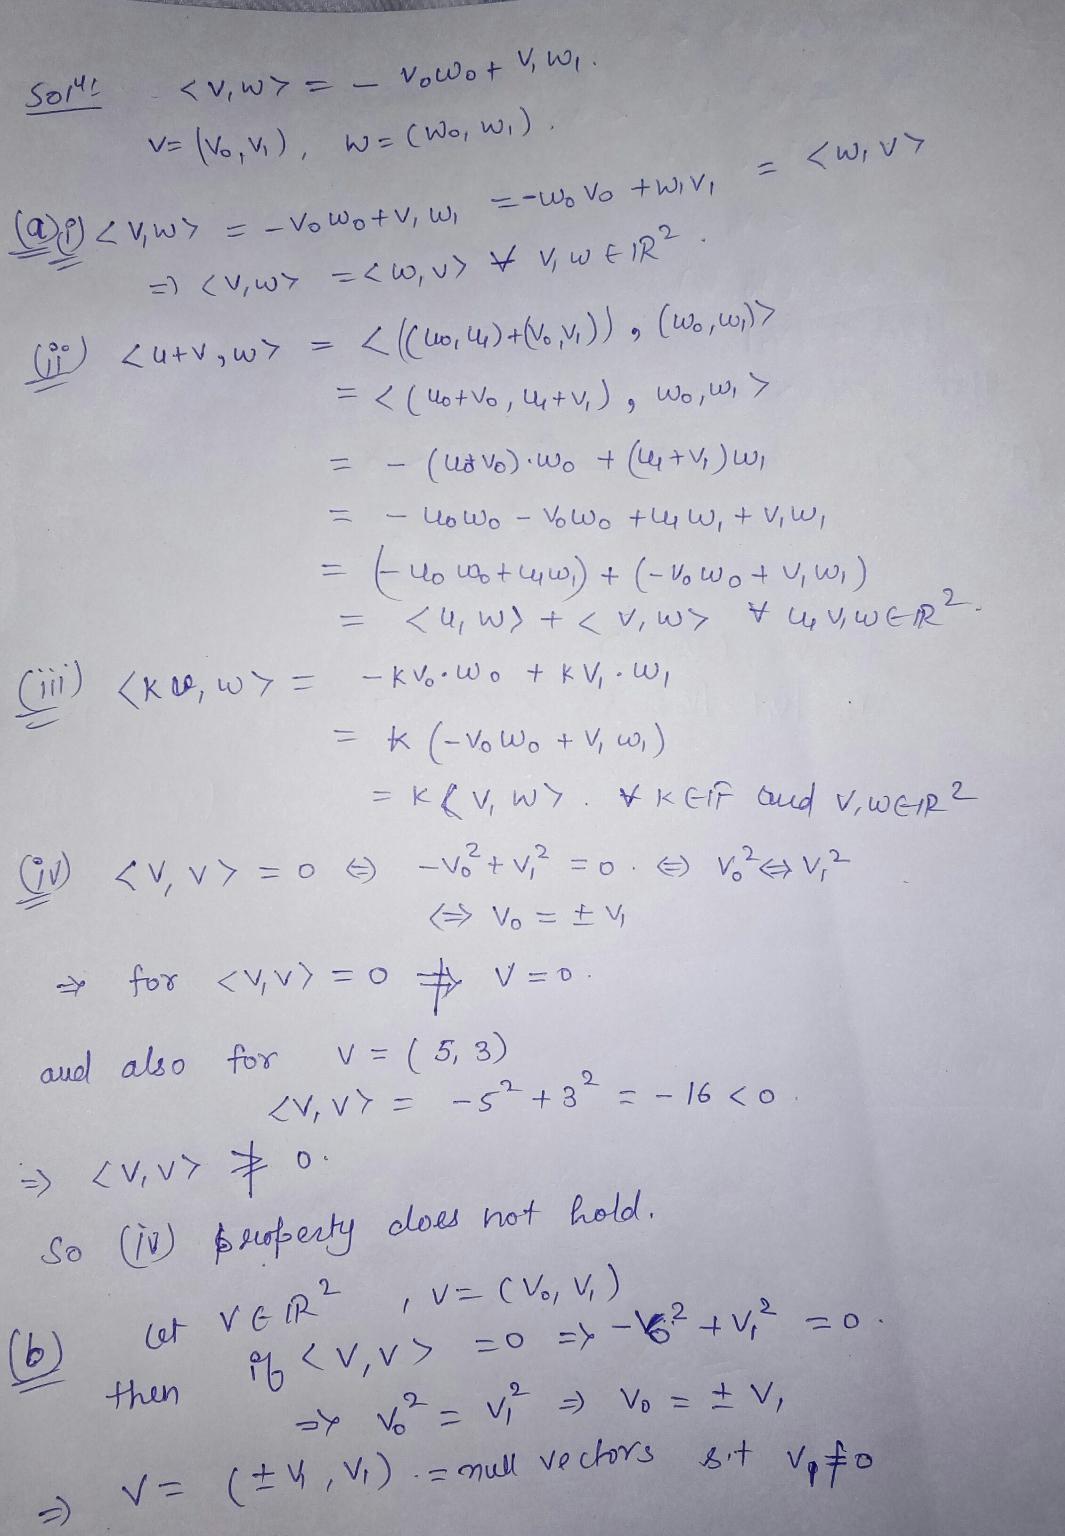 Solⁿ: <v,w> = - v₀w₀ + v₁w₁.
v = (v₀, v₁), w = (w₀, w₁).
(a) (i) <v,w> = -v₀w₀ + v₁w₁ = -w₀v₀ + w₁v₁ = <w,v>
=> <v,w> = <w,v> ∀ v,w ∈ ℝ².
(ii) <u+v, w> = <((u₀,u₁)+(v₀,v₁)), (w₀,w₁)>
= <(u₀+v₀, u₁+v₁), w₀,w₁>
= - (u₀+v₀)·w₀ + (u₁+v₁)w₁
= - u₀w₀ - v₀w₀ + u₁w₁ + v₁w₁
= (-u₀w₀ + u₁w₁) + (-v₀w₀ + v₁w₁)
= <u,w> + <v,w> ∀ u,v,w ∈ ℝ².
(iii) <kv, w> = -kv₀·w₀ + kv₁·w₁
= k (-v₀w₀ + v₁w₁)
= k<v,w>. ∀ k ∈ 𝔽 and v,w ∈ ℝ²
(iv) <v,v> = 0 ⇔ -v₀² + v₁² = 0. ⇔ v₀² ⇔ v₁²
⇔ v₀ = ± v₁
⇒ for <v,v> = 0 ⇏ v = 0.
and also for v = (5, 3)
<v,v> = -5² + 3² = -16 < 0.
⇒ <v,v> ≱ 0.
So (iv) property does not hold.
(b) let v ∈ ℝ², v = (v₀, v₁)
then if <v,v> = 0 => -v₀² + v₁² = 0.
=> v₀² = v₁² => v₀ = ± v₁
=> v = (± v₁, v₁). = null vectors s.t v₁ ≠ 0